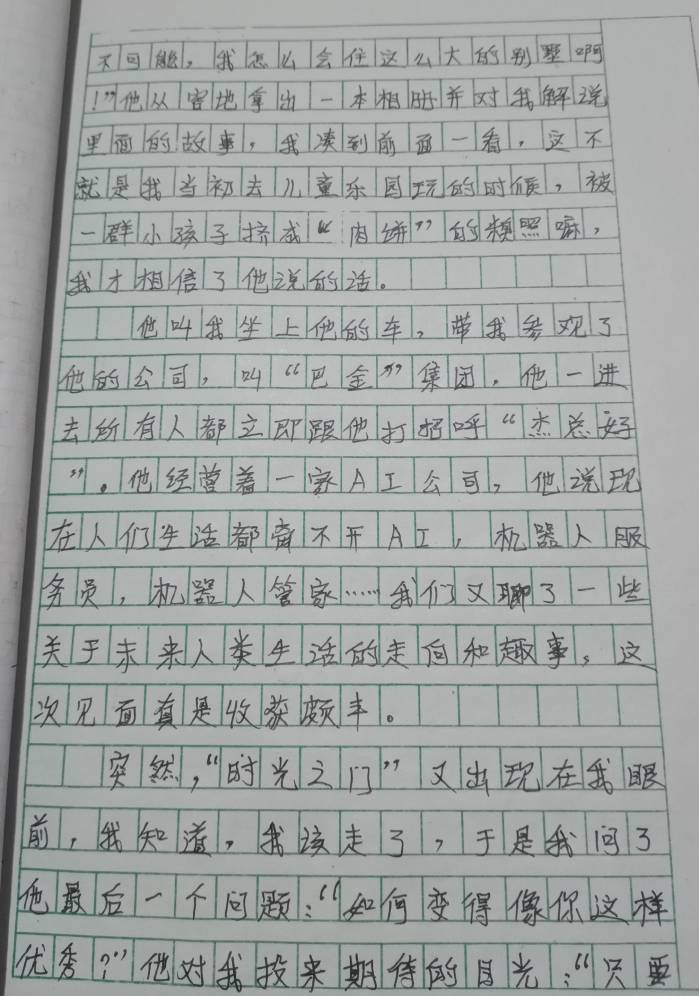 不可能，我怎么会住这么大的别墅啊
！”他从容地拿出一本相册并对我解说
里面的故事，我凑到前面一看，这不
就是我当初去儿童乐园玩的时候，被
一群小孩子挤成“肉饼”的照嘛，
我才相信了他说的话。
他叫我坐上他的车，带我参观了
他的公司，叫“巴金”集团，他一进
去所有人都立即跟他打招呼“杰总好
”。他经营着一家AI公司，他说现
在人们生活都离不开AI，机器人服
务员，机器人管家……我们又聊了一些
关于未来人类生活的走向和趣事，这
次见面真是收获颇丰。
突然，“时光之门”又出现在我眼
前，我知道，我该走了，于是我问了
他最后一个问题：“如何变得像你这样
优秀？”他对我投来期待的目光：“只要